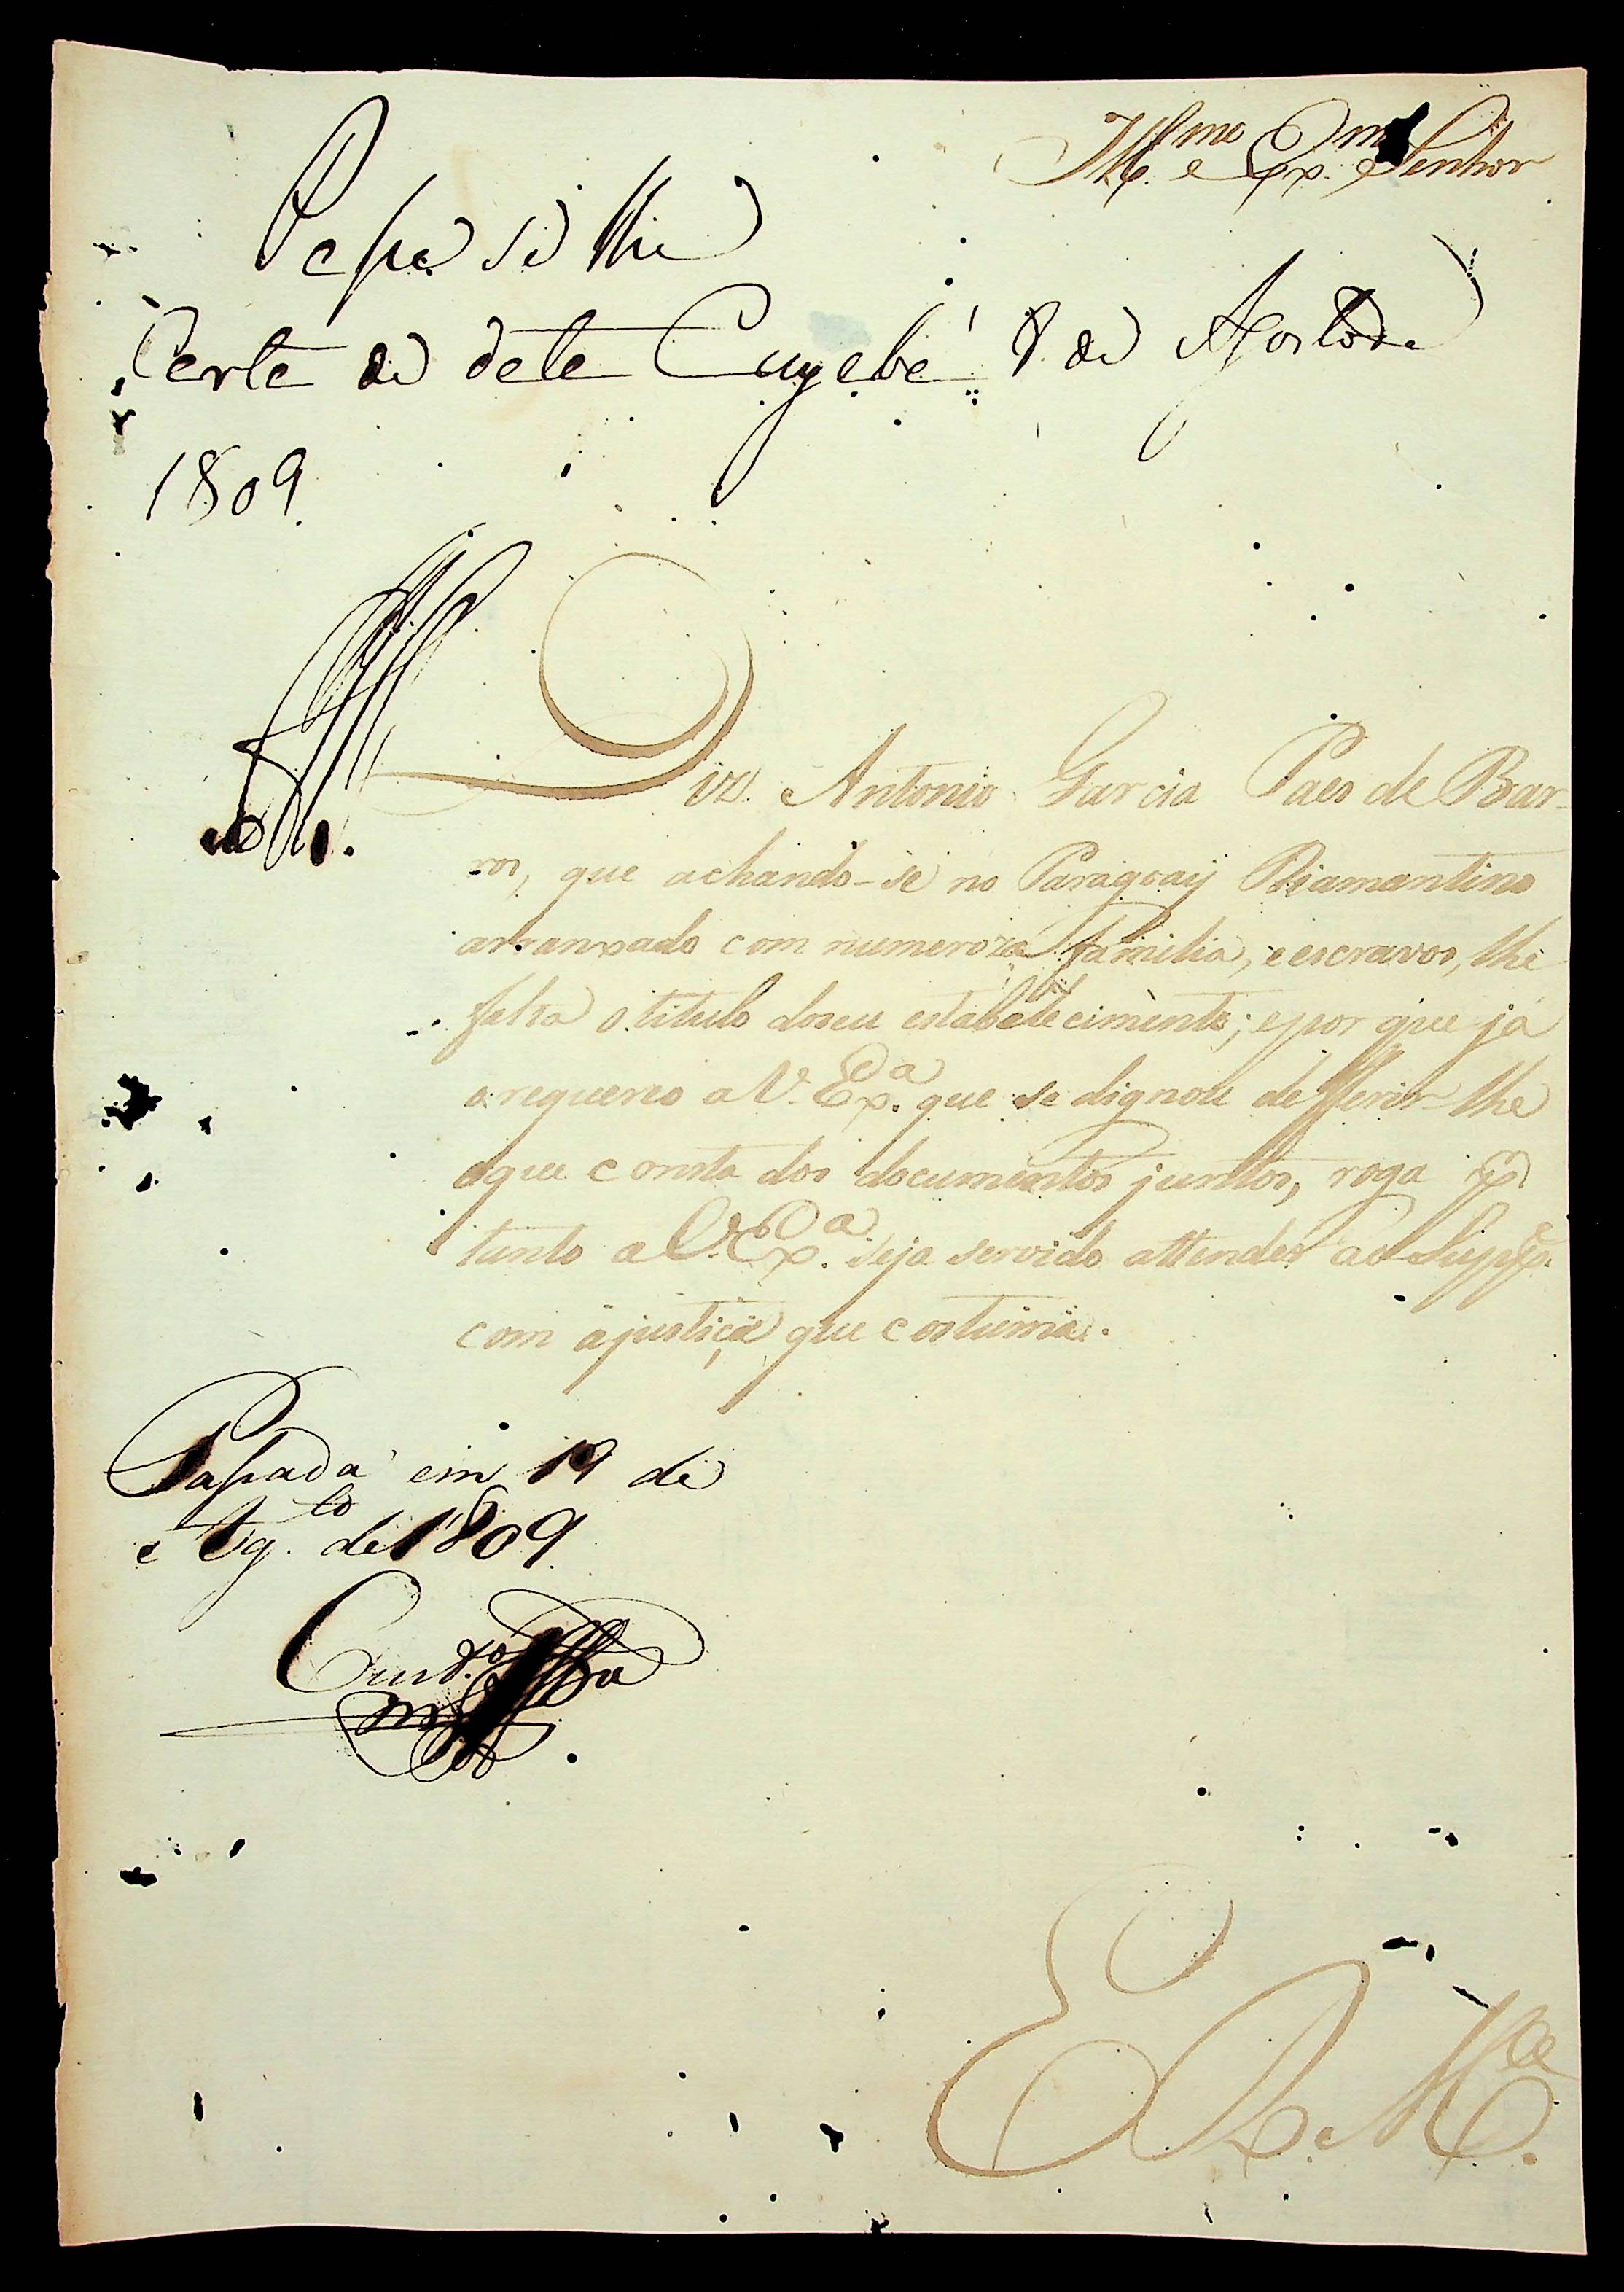 Ill.mo e Ex.mo Senhor
Passe se lhe
Carta de data Cuyabá 8 de Agosto de
1809
Diz Antonio Garcia Paes de Bar-
ros, que achando-se no Paragoaÿ Diamantino
arranxado com numeroza familia, e escravos, lhe
falta o titulo do seu estabelecimento; e por que já
o requereo a V. Ex.a que se dignou defferir-lhe
o que consta dos documentos juntos, roga
tanto a V. Ex.a seja servido attender ao Supp.e
com a justiça que costuma.
Passada em 19 de
Ag.to de 1809
E. R. M.ce